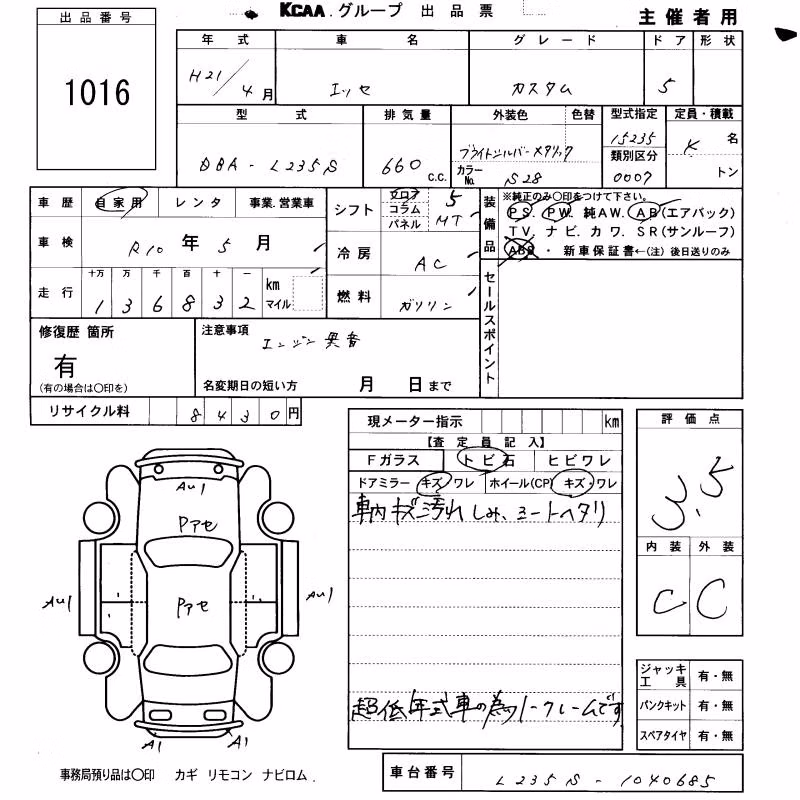 KCAA.グループ 出品票
主催者用
出品番号
1016
年式 車名 グレード ドア 形状
H21/4月 エッセ カスタム 5
型式 排気量 外装色 色替 型式指定 定員・積載
DBA-L235S 660 c.c. ブライトシルバーメタリック 15235 K 名
カラーNo. S28 類別区分 0007 トン
車歴 自家用 レンタ 事業.営業車
車検 R10年5月
走行 十万 万 千 百 十 一
136832 km マイル
シフト フロア コラム パネル 5 MT
冷房 AC
燃料 ガソリン
装備品
※純正のみ〇印をつけて下さい。
PS. PW. 純AW. AB(エアバック)
TV. ナビ. カワ. SR(サンルーフ)
・新車保証書←(注)後日送りのみ
セールスポイント
修復歴 箇所
有
(有の場合は〇印を)
注意事項
エンジン異音
名変期日の短い方 月 日まで
リサイクル料 8430円
現メーター指示 km
【査定員記入】
Fガラス トビ石 ヒビワレ
ドアミラー キズ・ワレ ホイール(CP) キズ・ワレ
車内キズ汚れしみ、シートヘタリ
超低年式車の為ノークレームです
評価点
3.5
内装 外装
C C
AU1
Pアセ
AU1 Pアセ AU1
A1 A1
ジャッキ工具 有・無
パンクキット 有・無
スペアタイヤ 有・無
事務局預り品は〇印 カギ リモコン ナビロム.
車台番号 L235S-1040685